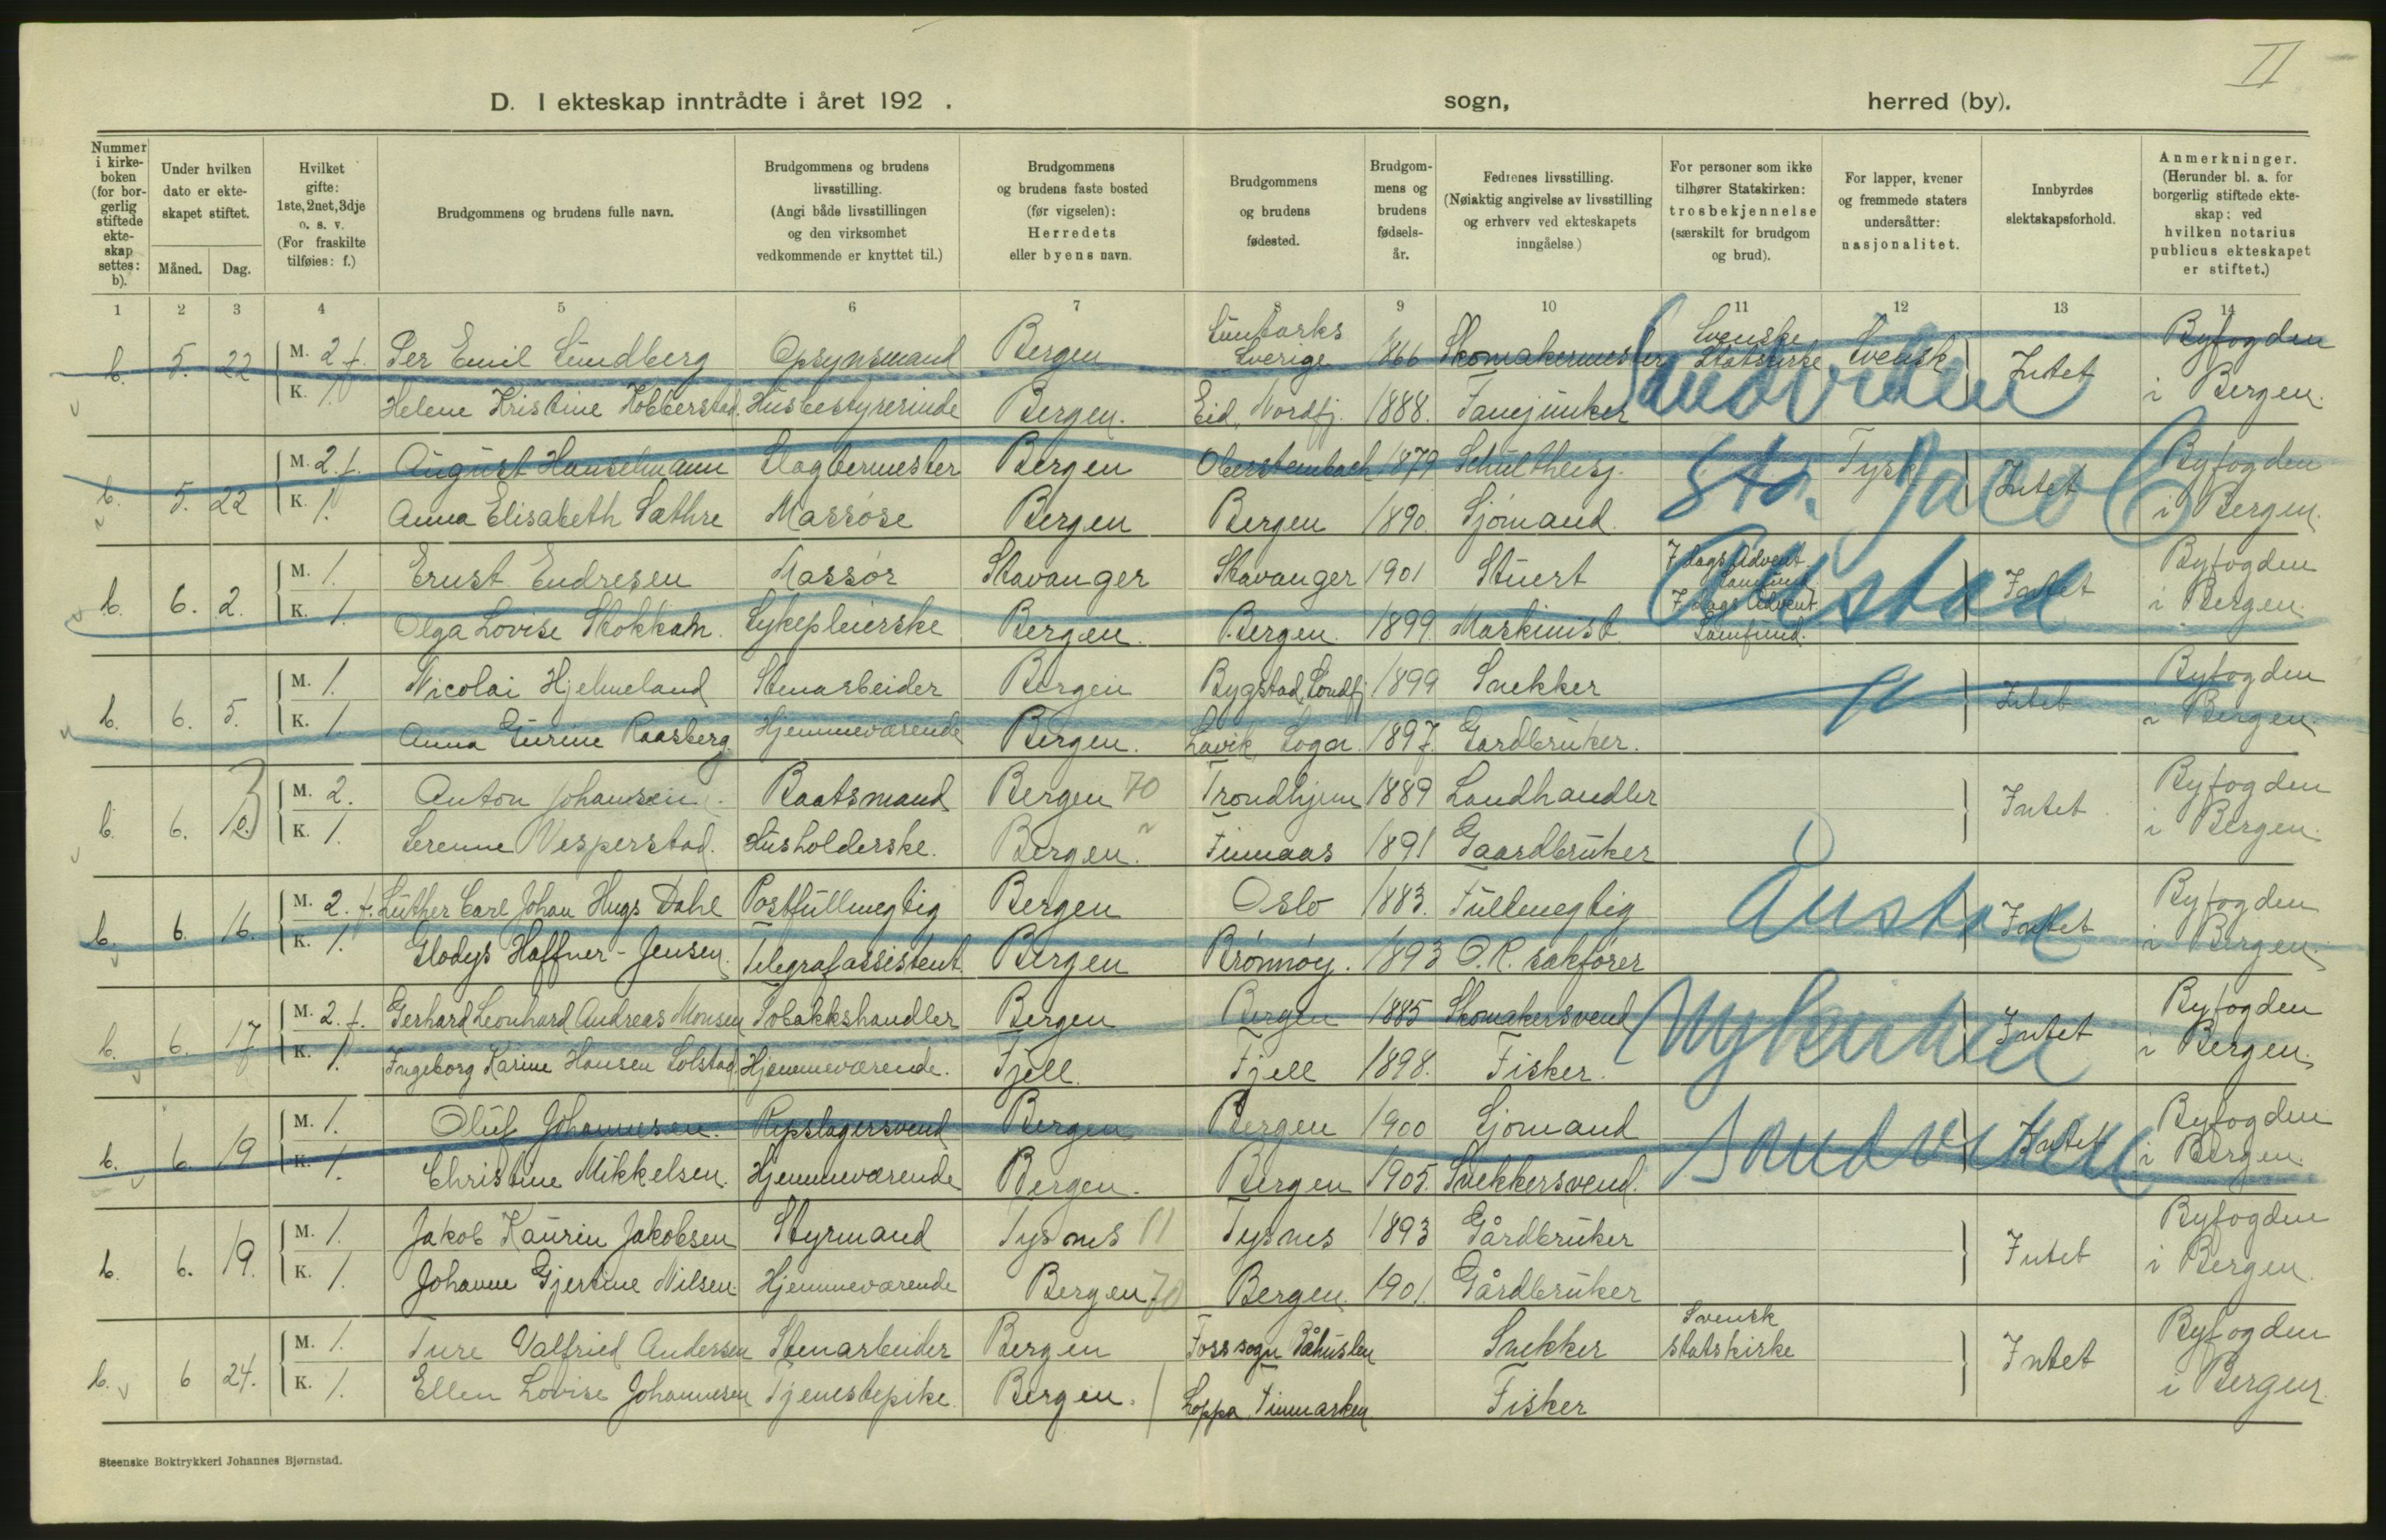 II
D. I ekteskap inntrådte i året 192 . sogn, herred (by).
Nummer i kirke-boken (for bor-gerlig stiftede ekte-skap settes: b).
Under hvilken dato er ekte-skapet stiftet.
Måned. Dag.
Hvilket gifte: 1ste, 2net, 3dje o. s. v. (For fraskilte tilføies: f.)
Brudgommens og brudens fulle navn.
Brudgommens og brudens livsstilling. (Angi både livsstillingen og den virksomhet vedkommende er knyttet til.)
Brudgommens og brudens faste bosted (før vigselen): Herredets eller byens navn.
Brudgommens og brudens fødested.
Brudgom-mens og brudens fødsels-år.
Fedrenes livsstilling. (Nøiaktig angivelse av livsstilling og erhverv ved ekteskapets inngåelse.)
For personer som ikke tilhører Statskirken: trosbekjennelse (særskilt for brudgom og brud).
For lapper, kvener og fremmede staters undersåtter: nasjonalitet.
Innbyrdes slektskapsforhold.
Anmerkninger. (Herunder bl. a. for borgerlig stiftede ekte-skap: ved hvilken notarius publicus ekteskapet er stiftet.)
1 2 3 4 5 6 7 8 9 10 11 12 13 14
b. 5. 22 M. 2 f. Per Emil Lundberg Opsynsmand Bergen Sverige 1866 Skomakermester Svenske Statskirke Svensk Intet Byfogden
K. 1. Helene Kristine Kobberstad Husbestyrerinde Bergen. Eid, Nordfj. 1888. Fanejunker Sandviken i Bergen.
b. 5. 22 M. 2. f. August Hanselmann Slagtermester Bergen Obersteinbach 1879 Schultheisj. Tysk Intet Byfogden
K. 1. Anna Elisabeth Sæthre Massøse Bergen Bergen 1890. Sjømand. St. Jacob i Bergen.
b. 6. 2. M. 1. Ernst Endresen Massør Stavanger Stavanger 1901 Stuert 7 dags Advent. Samfund Intet Byfogden
K. 1. Olga Lovise Stokkan. Sykepleierske Bergen. Bergen. 1899. Maskinist. 7 dags Advent. Samfund. Årstad i Bergen.
b. 6. 5. M. 1. Nicolai Hjelmeland Stenarbeider Bergen Bygstad, Sondfj 1899 Snekker Intet Byfogden
K. 1. Anna Gurine Raasberg Hjemmeværende Bergen. Lavik Sogn. 1897. Gardbruker. i Bergen.
b. 6. M. 2. Anton Johansen. Baatsmand Bergen 70 Trondhjem 1889 Landhandler Intet Byfogden
K. 1. Serenne Vesperstad. Husholderske. Bergen. Finnaas 1891 Gaardbruker i Bergen.
b. 6. 16. M. 2. f. Luther Carl Johan Hugs Dahl Postfullmegtig Bergen Oslo 1883. Fullmegtig Intet Byfogden
K. 1. Gladys Haffner-Jensen. Telegrafassistent. Bergen Brønnøy. 1893 O.R. sakfører Årstad i Bergen.
b. 6. 17 M. 2. f. Gerhard Leonhard Andreas Monsen Tobakkshandler Bergen Bergen 1885 Skomakersvend Intet Byfogden
K. 1. Ingeborg Karine Hansen Solstad Hjemmeværende. Fjell. Fjell 1898. Fisker. Nykirken i Bergen.
b. 6. 19 M. 1. Oluf Johannesen. Repslagersvend Bergen Bergen 1900 Sjømand Intet Byfogden
K. 1. Christine Mikkelsen. Hjemmeværende Bergen. Bergen 1905. Snekkersvend. Sandviken i Bergen.
b. 6. 19. M. 1. Jakob Kaurin Jakobsen Styrmand Tysnes 11 Tysnes 1893 Gårdbruker Intet Byfogden
K. 1. Johanne Gjertine Nilsen Hjemmeværende Bergen 70 Bergen. 1901. Gårdbruker i Bergen.
b. 6 24. M. 1. Ture Valfried Andersen Stenarbeider Bergen Foss sogn Båhuslen Snekker Svensk statskirke Intet Byfogden
K. 1. Ellen Lovise Johannesen Tjenestepike. Bergen. Loppa, Finmarken Fisker i Bergen.
Steenske Boktrykkeri Johannes Bjørnstad.